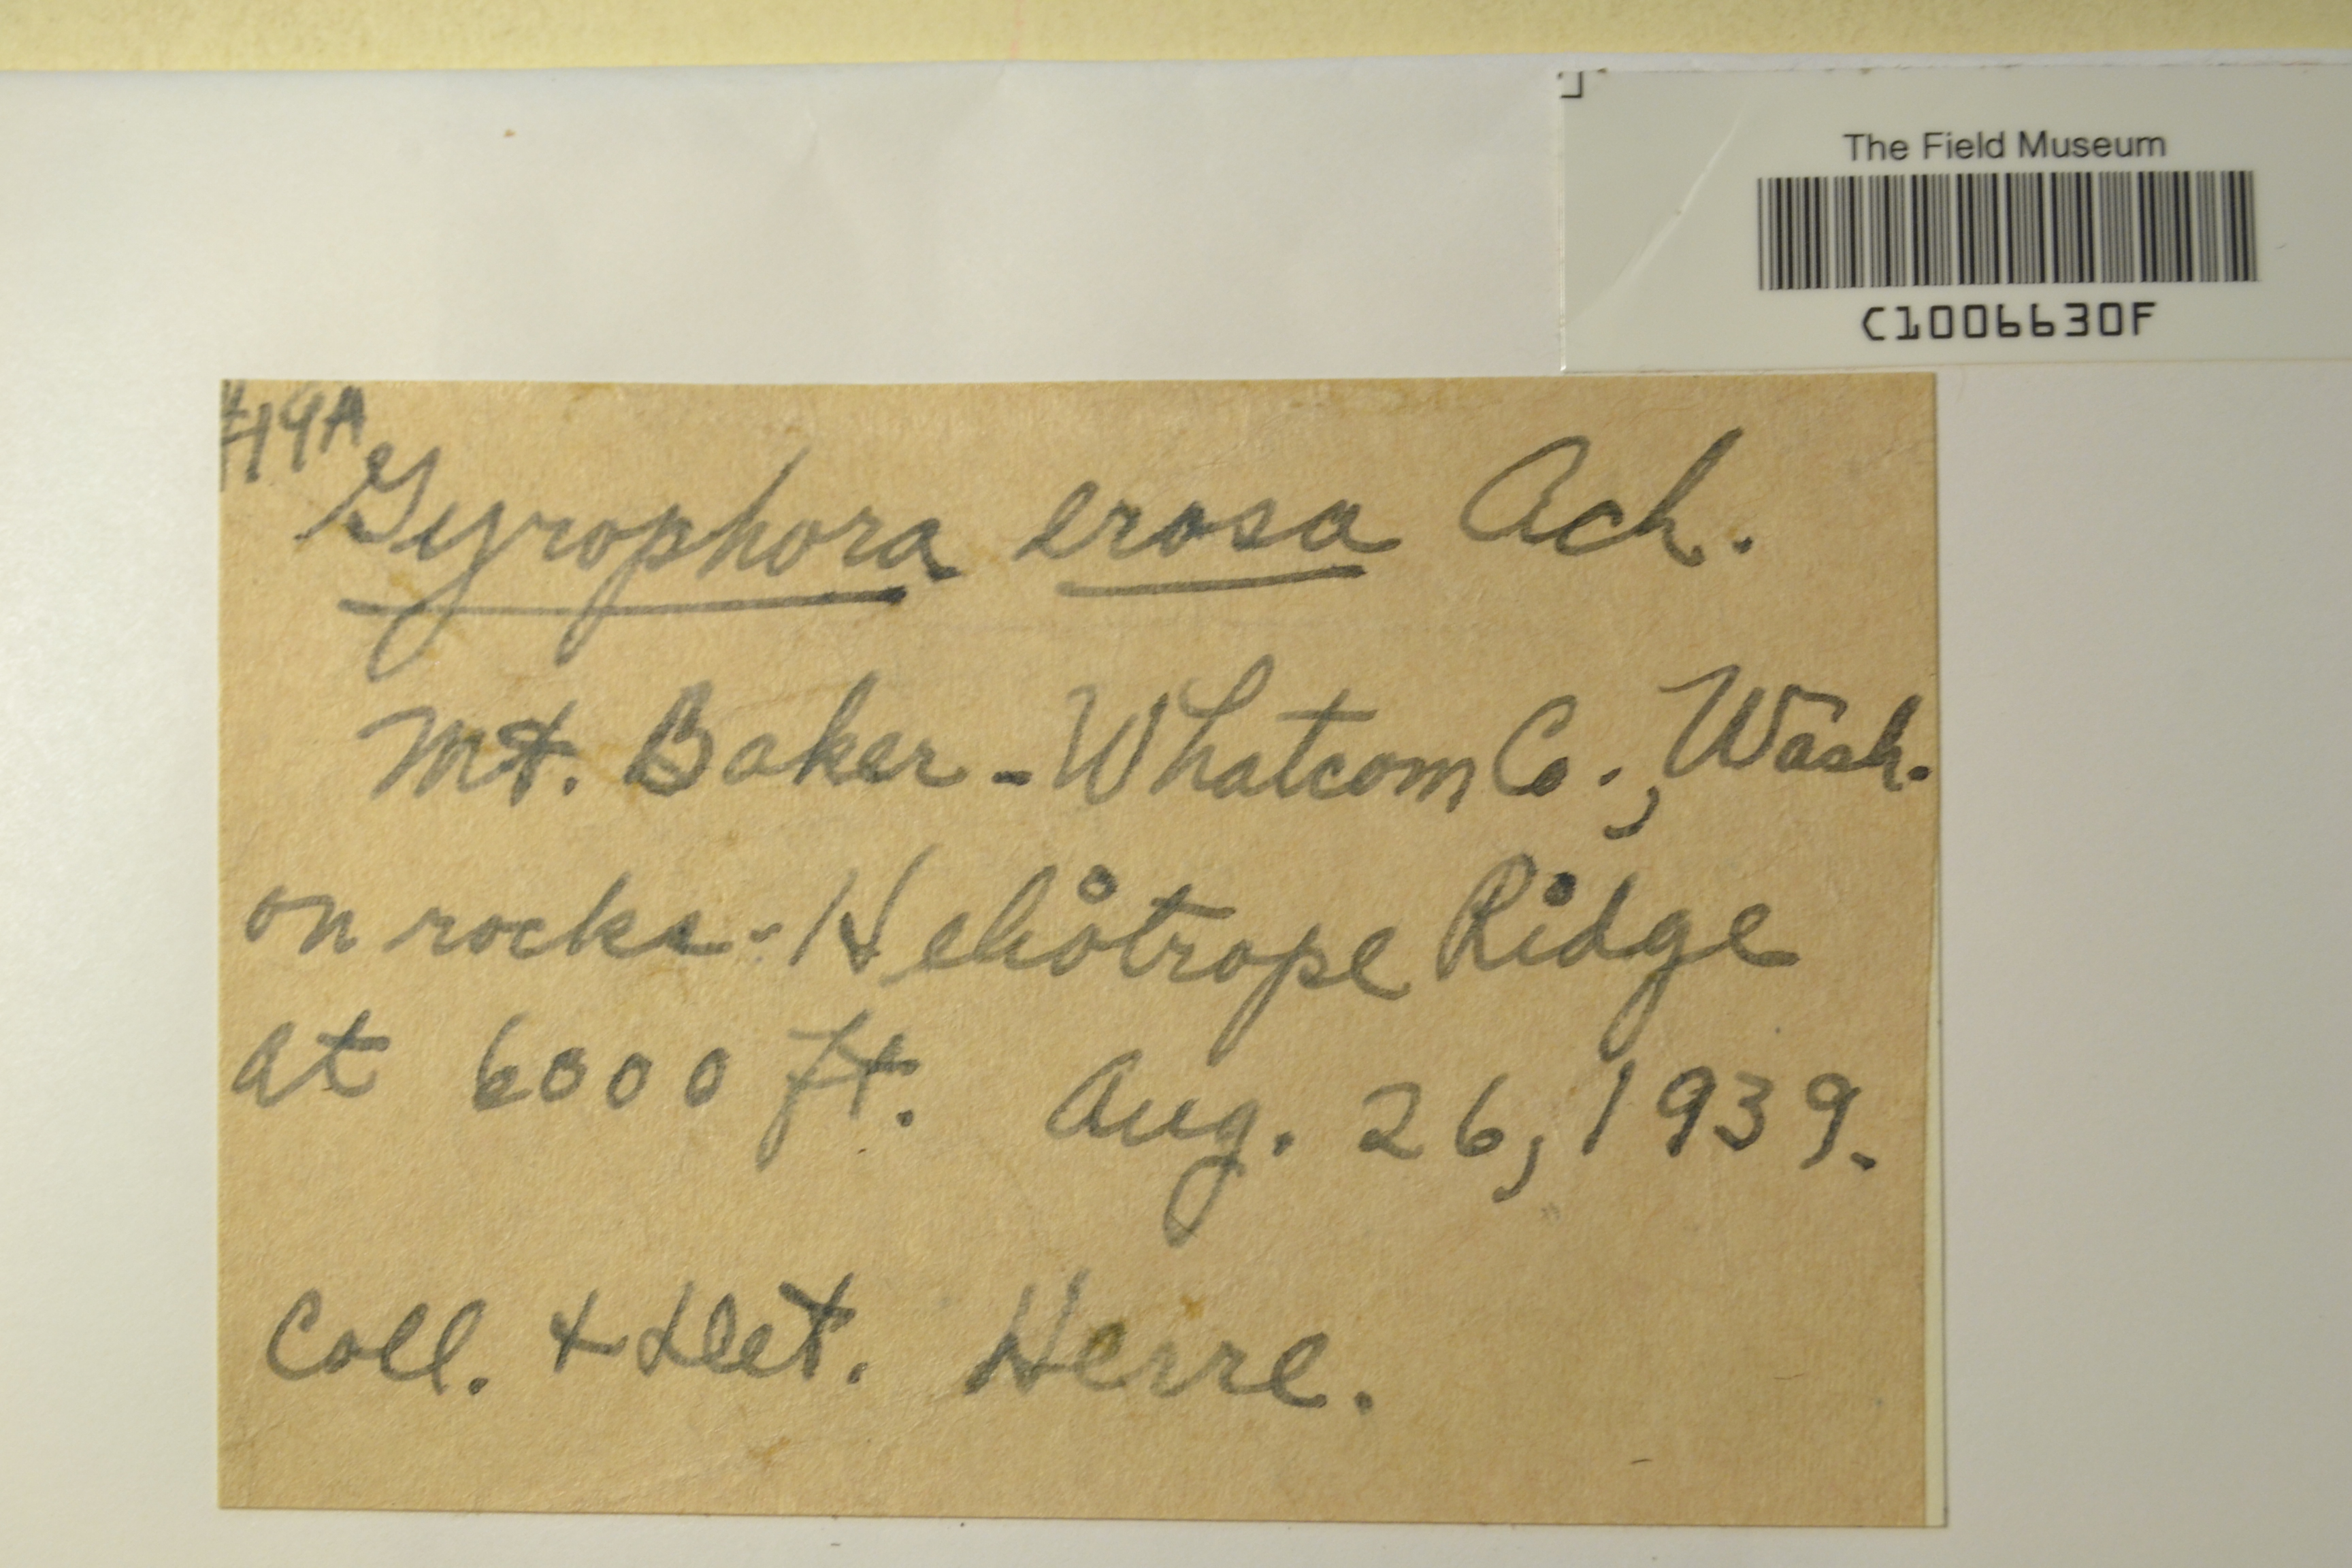 The Field Museum
C1006630F
#19A
Gyrophora erosa Ach.
Mt. Baker - Whatcom Co., Wash.
on rocks - Heliotrope Ridge
at 6000 ft. Aug. 26, 1939.
Coll. + Det. Herre.